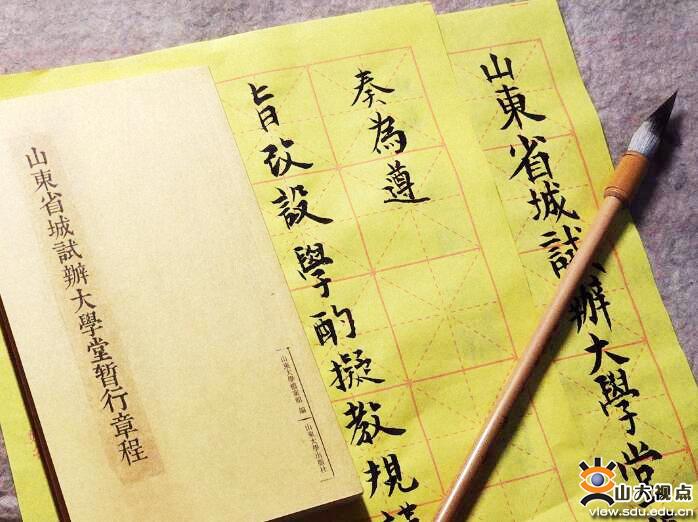 山東省城試辦大學堂
奏為遵
旨改設學酌擬教規
山東省城試辦大學堂暫行章程
山東大學檔案館 編
山東大學出版社
山大视点
view.sdu.edu.cn